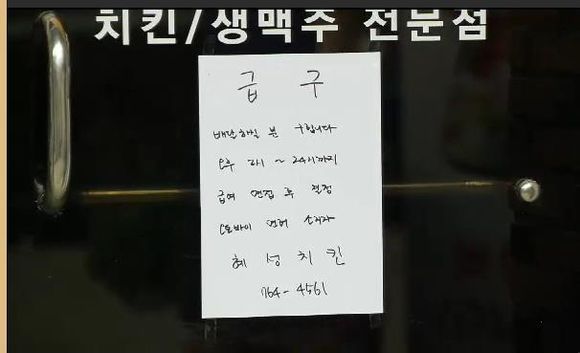 치킨/생맥주 전문점
급 구
배달하실 분 구합니다
오후 2시 ~ 24시까지
급여 면접 후 결정
오토바이 면허 소지자
혜성치킨
764-4561